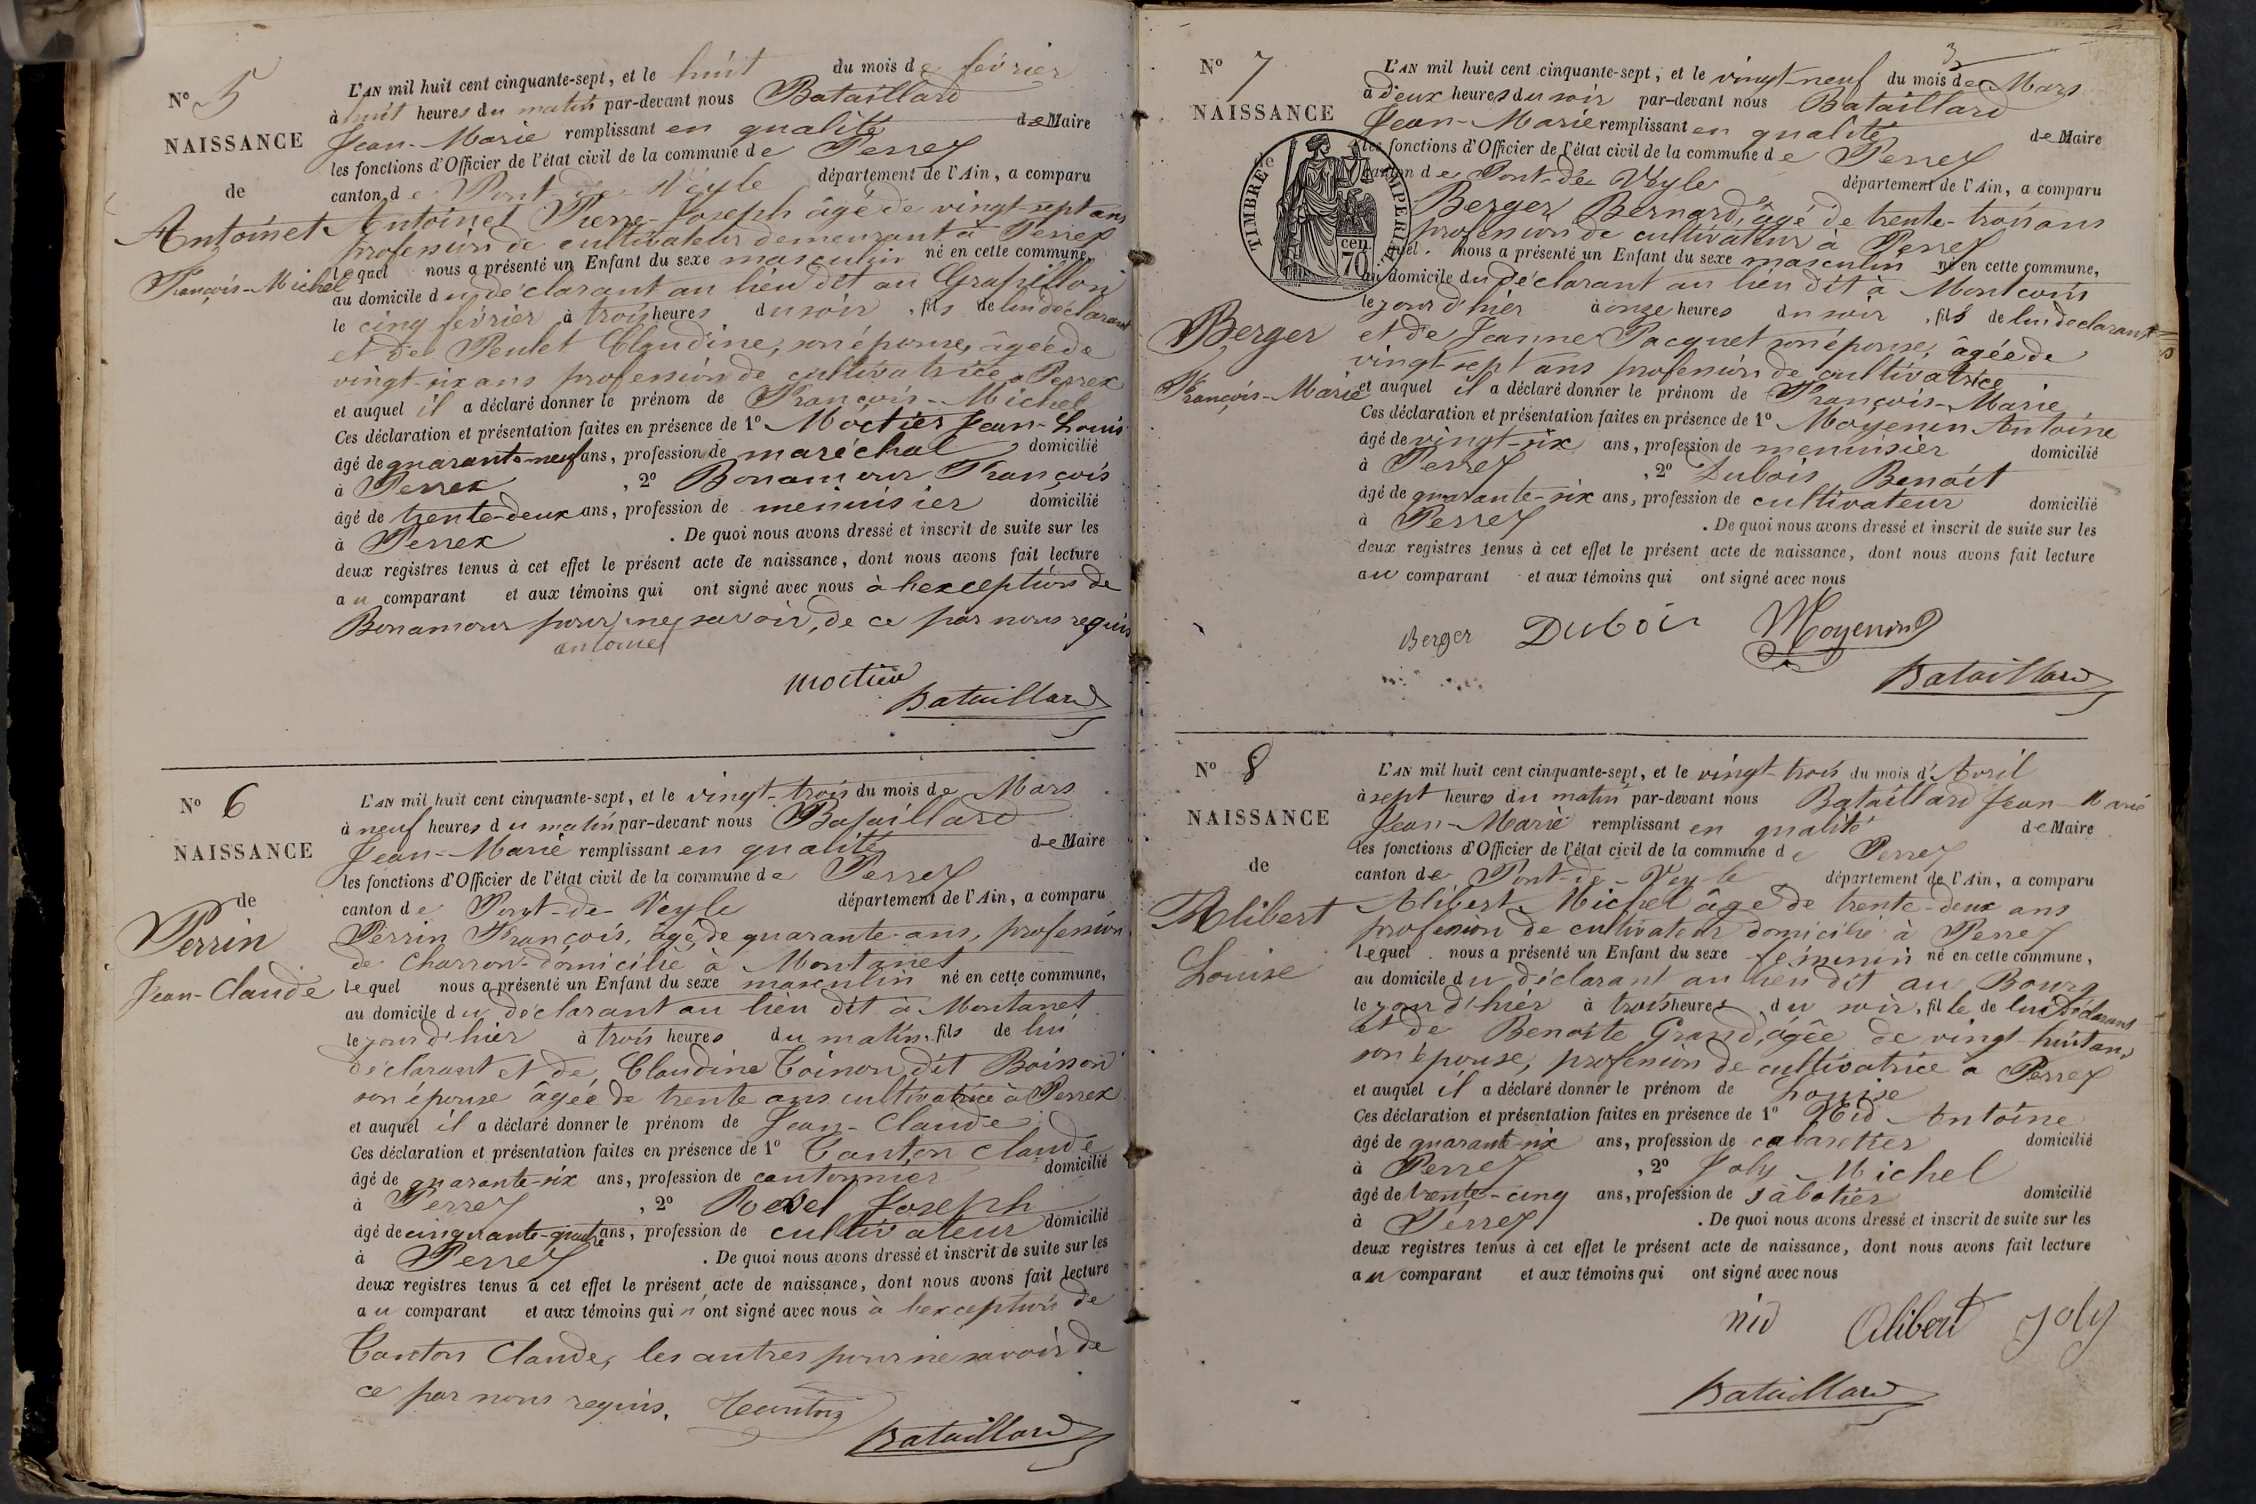 N° 5
NAISSANCE
de
Antoinet
François-Michel
L'AN mil huit cent cinquante-sept, et le huit du mois de février
à huit heures du matin par-devant nous Bataillard
Jean-Marie remplissant en qualité de Maire
les fonctions d'Officier de l'état civil de la commune de Perrex
canton de Pont de Veyle département de l'Ain, a comparu
Antoinet Pierre-Joseph âgé de vingt sept ans
profession de cultivateur demeurant à Perrex
lequel nous a présenté un Enfant du sexe masculin né en cette commune,
au domicile du déclarant au lieu dit au Grapillon
le cinq février à trois heures du soir, fils de lui déclarant
et de Peulet Claudine, son épouse, âgée de
vingt-six ans profession de cultivatrice à Perrex
et auquel il a déclaré donner le prénom de François-Michel
Ces déclaration et présentation faites en présence de 1° Moctier Jean-Louis
âgé de quarante-neuf ans, profession de maréchal domicilié
à Perrex, 2° Bonamour François
âgé de trente-deux ans, profession de menuisier domicilié
à Perrex. De quoi nous avons dressé et inscrit de suite sur les
deux registres tenus à cet effet le présent acte de naissance, dont nous avons fait lecture
au comparant et aux témoins qui ont signé avec nous à l'exception de
Bonamour pour ne savoir, de ce par nous requis
antoinet
moctier
Bataillard
N° 6
NAISSANCE
de
Perrin
Jean-Claude
L'AN mil huit cent cinquante-sept, et le vingt-trois du mois de Mars
à neuf heures du matin par-devant nous Bataillard
Jean-Marie remplissant en qualité de Maire
les fonctions d'Officier de l'état civil de la commune de Perrex
canton de Pont-de-Veyle département de l'Ain, a comparu
Perrin François, âgé de quarante-ans, profession
de Charron domicilié à Montanet
lequel nous a présenté un Enfant du sexe masculin né en cette commune,
au domicile du déclarant au lieu dit à Montanet
le jour d'hier à trois heures du matin, fils de lui
déclarant et de Claudine Toinon dit Boisson
son épouse âgée de trente ans cultivatrice à Perrex
et auquel il a déclaré donner le prénom de Jean-Claude
Ces déclaration et présentation faites en présence de 1° Tonton Claude
âgé de quarante-six ans, profession de cantonnier domicilié
à Perrex, 2° Joseph
âgé de cinquante-quatre ans, profession de cultivateur domicilié
à Perrex. De quoi nous avons dressé et inscrit de suite sur les
deux registres tenus à cet effet le présent acte de naissance, dont nous avons fait lecture
au comparant et aux témoins qui n'ont signé avec nous à l'exception de
Tonton Claude, les autres pour ne savoir de
ce par nous requis.
Bataillard
3
N° 7
NAISSANCE
de
TIMBRE IMPERIAL
70 cen
Berger
François-Marie
L'AN mil huit cent cinquante-sept, et le vingt-neuf du mois de Mars
à deux heures du soir par-devant nous Bataillard
Jean-Marie remplissant en qualité de Maire
les fonctions d'Officier de l'état civil de la commune de Perrex
canton de Pont-de-Veyle département de l'Ain, a comparu
Berger Bernard, âgé de trente-trois ans
profession de cultivateur à Perrex
lequel nous a présenté un Enfant du sexe masculin né en cette commune,
au domicile du déclarant au lieu dit à Montcoin
le jour d'hier à onze heures du soir, fils de lui declarant
et de Jeanne Pacquet son épouse, âgée de
vingt-sept ans profession de cultivatrice
et auquel il a déclaré donner le prénom de François-Marie
Ces déclaration et présentation faites en présence de 1° Moyenin Antoine
âgé de vingt-six ans, profession de menuisier domicilié
à Perrex, 2° Dubois Benoit
âgé de quarante-six ans, profession de cultivateur domicilié
à Perrex. De quoi nous avons dressé et inscrit de suite sur les
deux registres tenus à cet effet le présent acte de naissance, dont nous avons fait lecture
au comparant et aux témoins qui ont signé avec nous
Berger Dubois Moyenin
Bataillard
N° 8
NAISSANCE
de
Alibert
Louise
L'AN mil huit cent cinquante-sept, et le vingt-trois du mois d'Avril
à sept heures du matin par-devant nous Bataillard Jean-Marie
Jean-Marie remplissant en qualité de Maire
les fonctions d'Officier de l'état civil de la commune de Perrex
canton de Pont-de-Veyle département de l'Ain, a comparu
Alibert Michel âgé de trente-deux ans
profession de cultivateur domicilié à Perrex
lequel nous a présenté un Enfant du sexe féminin né en cette commune,
au domicile du déclarant au lieu dit au Bourg
le jour d'hier à trois heures du soir, fille de lui déclarant
et de Benoite Grand, âgée de vingt-huit ans
son épouse, profession de cultivatrice à Perrex
et auquel il a déclaré donner le prénom de Louise
Ces déclaration et présentation faites en présence de 1° Nid Antoine
âgé de quarante-six ans, profession de cabaretier domicilié
à Perrex, 2° Joly Michel
âgé de trente-cinq ans, profession de sabotier domicilié
à Perrex. De quoi nous avons dressé et inscrit de suite sur les
deux registres tenus à cet effet le présent acte de naissance, dont nous avons fait lecture
au comparant et aux témoins qui ont signé avec nous
nid Alibert Joly
Bataillard